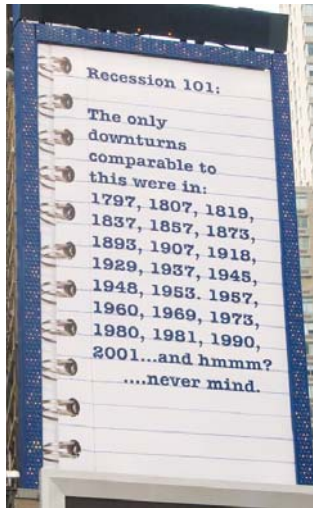 Recession 101:
The only
downturns
comparable to
this were in:
1797, 1807, 1819,
1837, 1857, 1873,
1893, 1907, 1918,
1929, 1937, 1945,
1948, 1953. 1957,
1960, 1969, 1973,
1980, 1981, 1990,
2001...and hmmm?
....never mind.